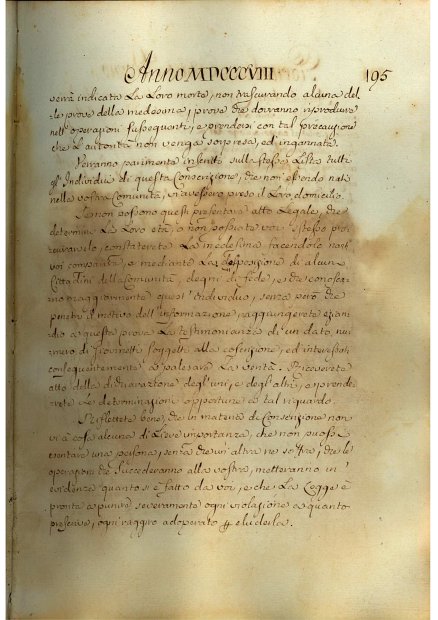 Anno MDCCCVIII 195
verrà indicata La Loro morte, non trascurando alcuna del-
le prove della medesima, prove che dovranno riprodurre
nell'operazioni susseguenti, e prendersi con tal precauzione
che L'autorità non venga sorpresa, ed ingannata.
Verranno parimente inseriti sulla stessa Lista tutti
gl'Individui di questa Conscrizione, che non essendo nati
nella vostra Comunità, v'avessero preso il Loro domicilio.
Se non possono questi presentare atto Legale, che
determini La Loro età, o non possiate voi stessi pro-
curarvelo, constaterete La medesima facendolo
voi, o mediante La disposizione di alcuni
Cittadini della Comunità, degni di fede, e che conoscano
maggiormente quest'individuo, senza però che
penetri il motivo dell'informazione, raggiungerete
a questa prova La testimonianza di un dato nu-
mero di Giovinetti soggetti alla coscrizione, ed interessati
conseguentemente a palesare La verità. Riceverete
atto della dichiarazione degl'uni, e degl'altri, e prende-
rete Le determinazioni opportune a tal riguardo.
Riflettete bene, che in materia di Conscrizione non
vi à cosa alcuna di Lieve importanza, che non può sot-
trarre una persona, senza che un'altra ne soffra, che le
operazioni che succederanno alla vostra, metteranno in
evidenza quanto si è fatto da voi, e che La Legge è
pronta a punire severamente ogni violazione a quanto
prescrive, ogni raggiro adoperato per eluderla.